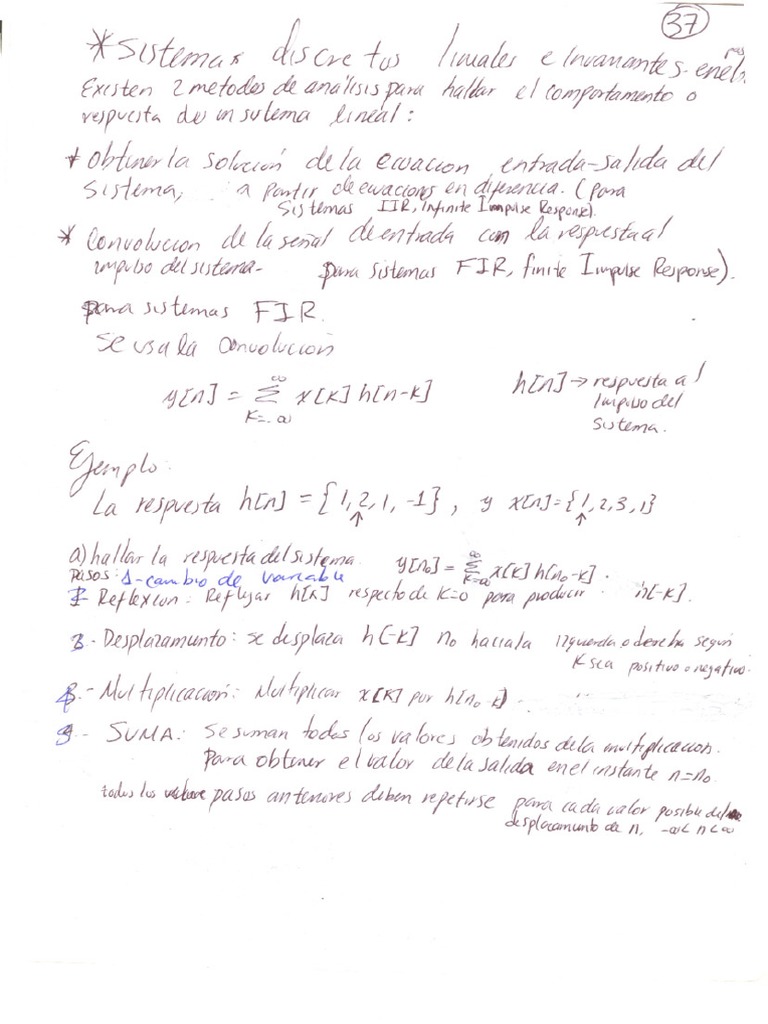 37
* Sistemas discretos lineales e Invariantes en el
Existen 2 metodos de análisis para hallar el comportamento o
respuesta de un sistema lineal:
* Obtener la solución de la ecuacion entrada-salida del
sistema, a partir de ecuaciones en diferencia. (para
sistemas IIR, Infinite Impulse Response).
* Convolucion de la señal de entrada con la respuesta al
impulso del sistema- para sistemas FIR, finite Impulse Response).
para sistemas FIR.
Se usa la convolución
y[n] = ∞ Σ K=-∞ x[k] h[n-k] h[n] → respuesta al
Impulso del
sistema.
Ejemplo:
La respuesta h[n] = {1, 2, 1, -1}, y x[n] = {1, 2, 3, 1}
↑ ↑
a) hallar la respuesta del sistema y[n₀] = ∞ Σ k=-∞ x[k] h[n₀-k].
pasos: 1-cambio de variable
2- Reflexion: Reflejar h[k] respecto de K=0 para producir h[-k].
3.- Desplazamiento: se desplaza h[-k] n₀ hacia la izquierda o derecha según
K sea positivo o negativo.
4.- Multiplicación: Multiplicar x[k] por h[n₀-k].
5- SUMA: Se suman todos los valores obtenidos de la multiplicacion.
Para obtener el valor de la salida en el instante n=n₀
todos los pasos anteriores deben repetirse para cada valor posible del
desplazamiento de n, -∞< n <∞